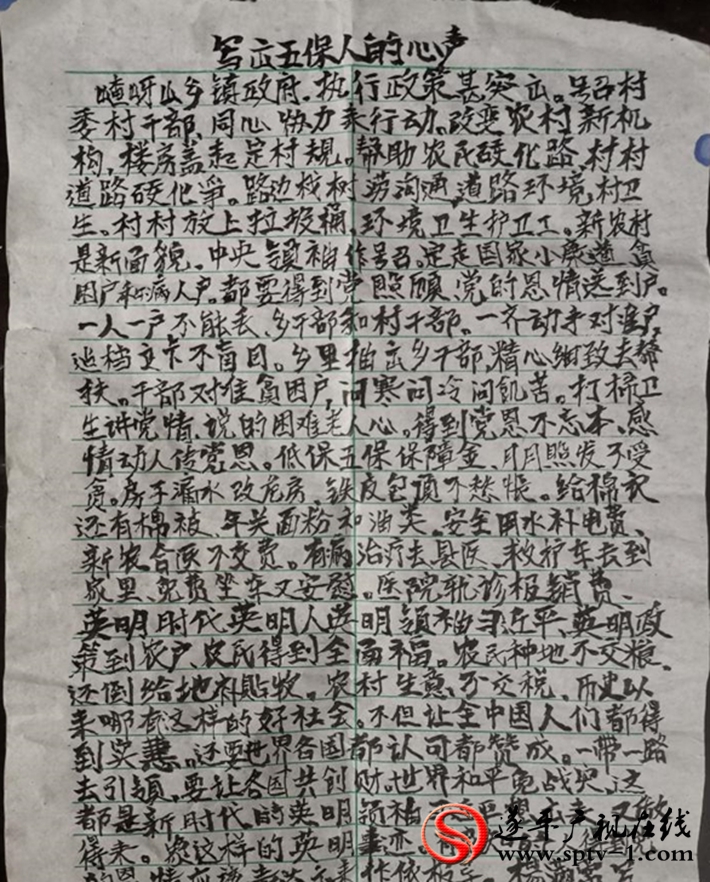 写出五保人的心声
嵖岈山乡镇政府。执行政策甚突出。号召村
委村干部、同心协力来行动。改变农村新机
构，楼房盖起定村规。帮助农民硬化路，村村
道路硬化净。路边栽树涝沟通，道路环境，村卫
生。村村放上垃圾桶，环境卫生护卫工。新农村
是新面貌。中央领袖作号召。定走国家小康道，贫
困户和病人户。都要得到党照顾、党的恩情送到户。
一人一户不能丢、乡干部和村干部。一齐动手对准户，
巡档立卡不盲目。乡里抽出乡干部，精心细致去帮
扶。干部对准贫困户，问寒问冷问饥苦。打掃卫
生讲党情，说的困难老人心。得到党恩不忘本、感
情动人传党恩。低保五保保障金、月月照发不受
贪。房子漏水改危房、铁皮包顶不愁帐。给棉衣
还有棉被、年关面粉和油类。安全用水补电费、
新农合医不交费。有病治疗去县医、救护车去到
家里、免费坐车又安慰。医院就诊报销费、
英明时代英明人英明领袖习近平、英明政
策到农户、农民得到全面福。农民种地不交粮、
还倒给地补贴收。农村生意、不交税、历史以
来哪有这样的好社会。不但让全中国人们都得
到实惠。还要世界各国都认可都赞成。一带一路
去引领。要让各国共创财。世界和平免战灾。这
都是新时代的英明领袖
得来。像这样的英明事迹。
恩情应该
遂平产视在线
www.sptv-1.com